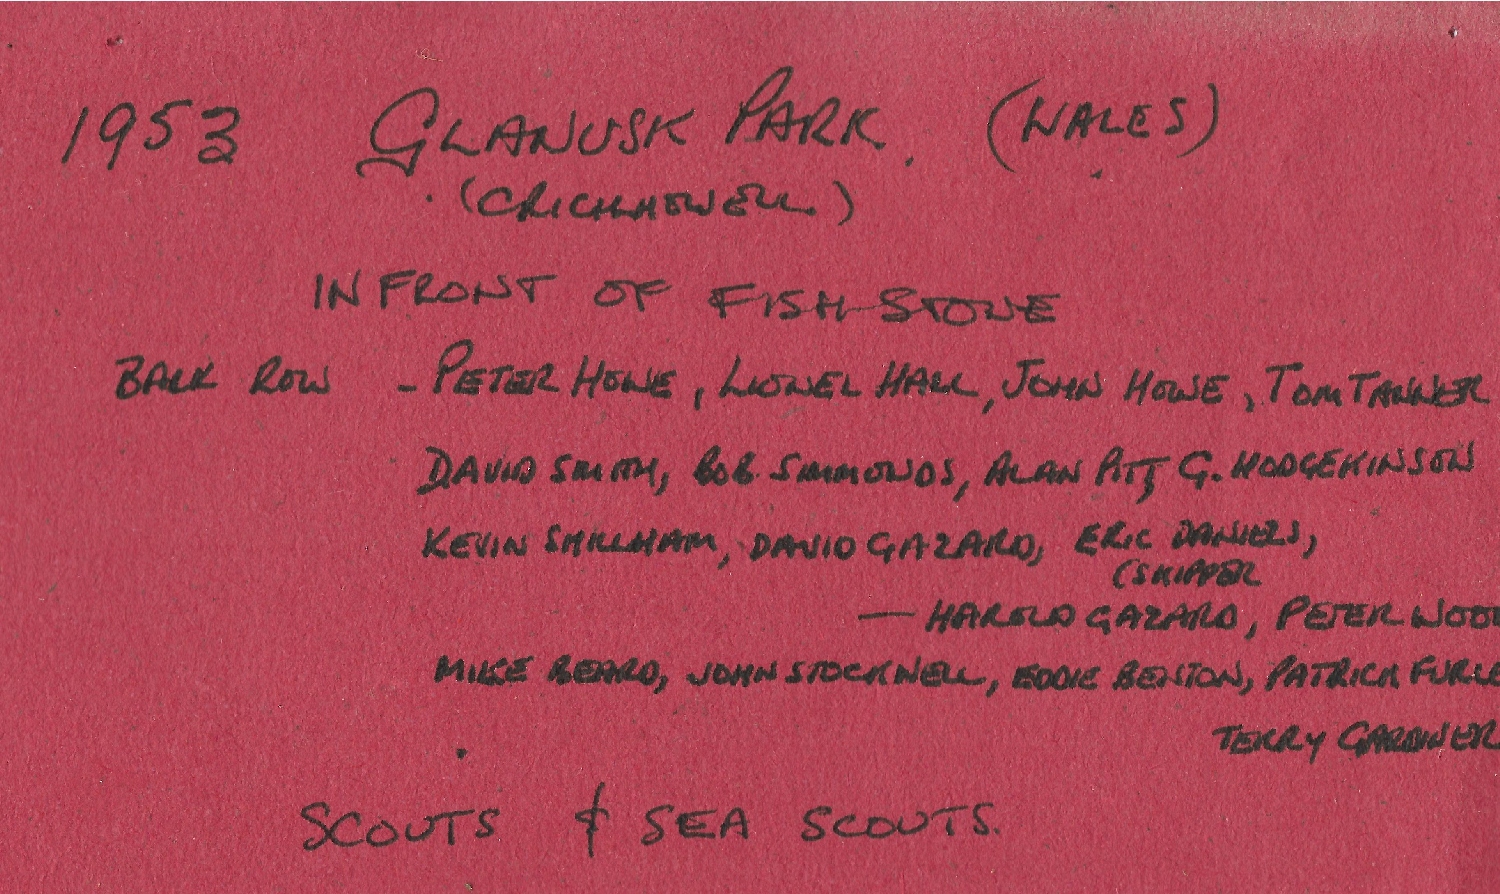 1953 GLANUSK PARK. (WALES)
(CRICKHOWELL)
IN FRONT OF FISH-STONE
BACK ROW - PETER HOWE, LIONEL HALL, JOHN HOWE, TOM TANNER
DAVID SMITH, BOB SIMMONDS, ALAN PITT, G. HODGEKINSON
KEVIN SHILLHAM, DAVID GAZARD, ERIC DANIELS,
(SKIPPER
— HAROLD GAZARD, PETER WOOD
MIKE BEARD, JOHN STOCKWELL, EDDIE BENTON, PATRICK FURLE
TERRY GARDINER
SCOUTS & SEA SCOUTS.